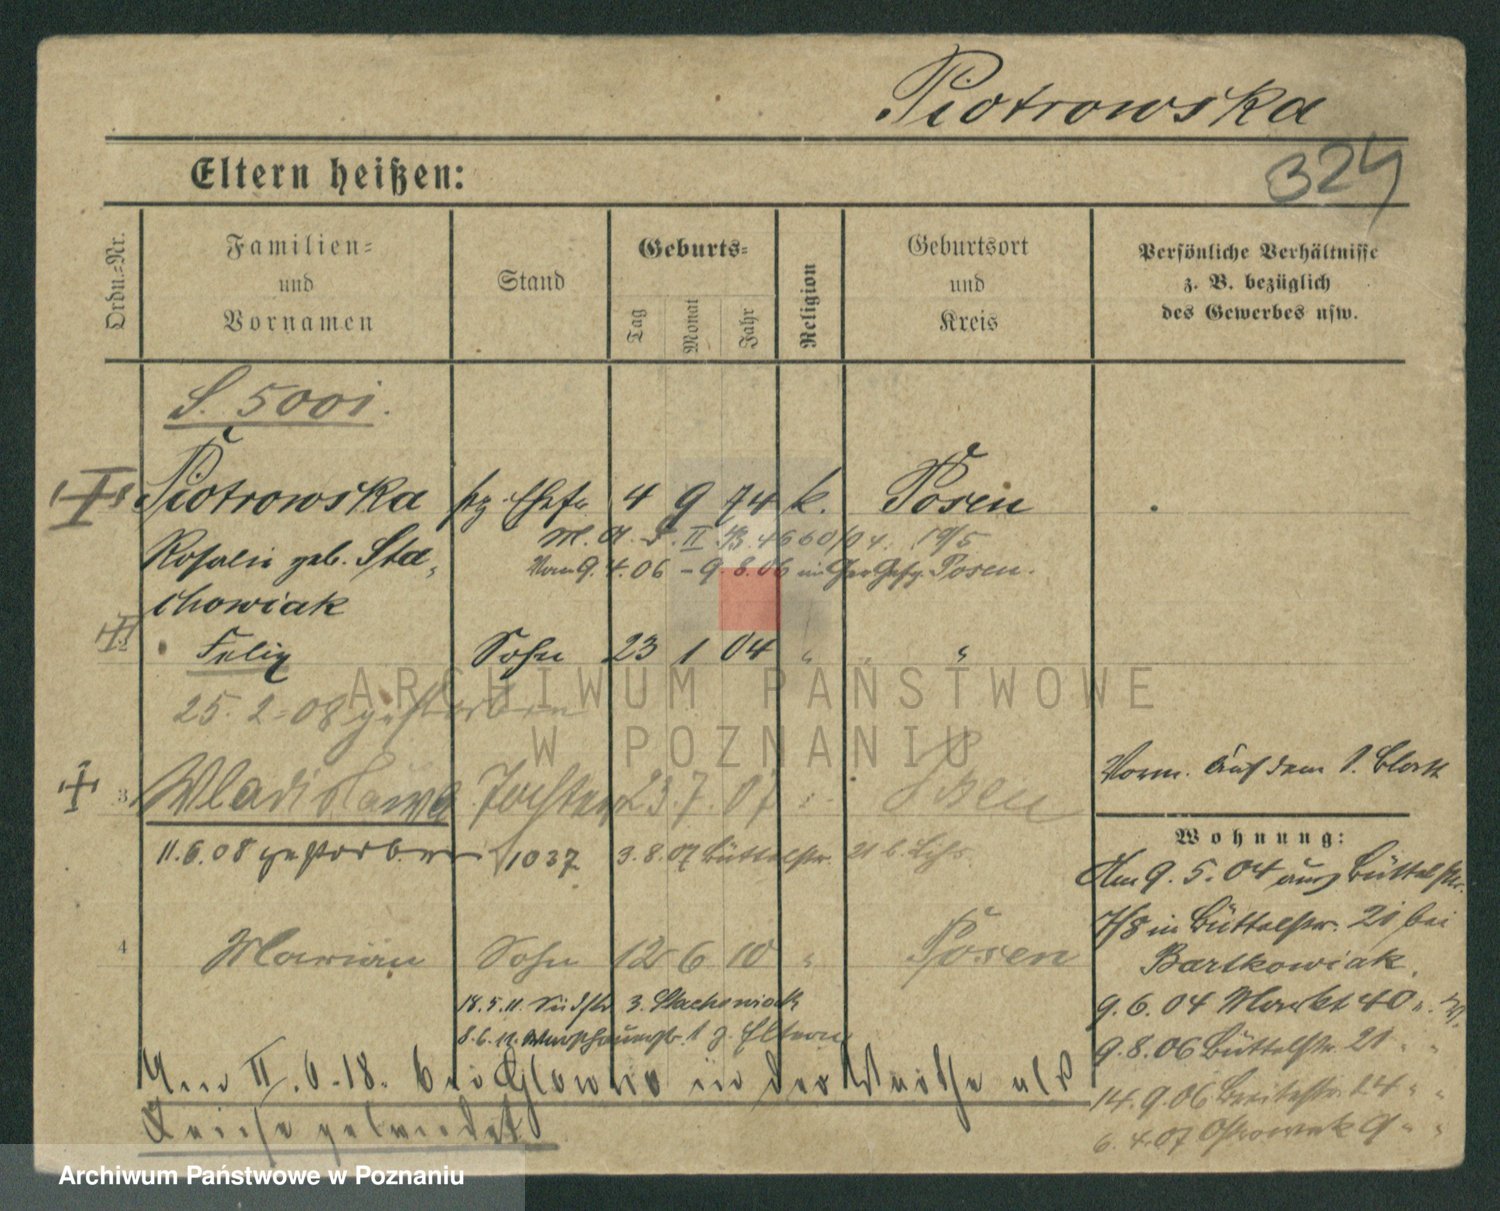 Piotrowska
324
Eltern heißen:
Ordn.-Nr.
Familien-
und
Vornamen
Stand
Geburts-
Tag
Monat
Jahr
Religion
Geburtsort
und
Kreis
Persönliche Verhältnisse
z. B. bezüglich
des Gewerbes usw.
S. 5001.
Piotrowska Ehefr. 4 9 74 k. Posen
Rosalie geb. Sta-
chowiak
M. A. S. II B. 4660/04. 19/5
Vom 9. 4. 06 - 9. 8. 06 im Ger Gefg. Posen.
2 Felix Sohn 23 1 04 " "
25. 2. 08 gestorben
3 Wladislawa Tochter 23. 7. 07 Posen
11. 6. 08 gestorben 1037 3. 8. 07 Büttelstr. 21 b.
4 Marian Sohn 12 6 10 " Posen
18. 5. 11. Südstr 3. Stachowiak
8. 6. 12. 1 z. Eltern
Am II. 6. 18. bei Glowno in der Warthe als
Leiche gelandet
Vorm. auf dem 1. Blatt
Wohnung:
Am 9. 5. 04 aus Büttelstr.
7/8 in Büttelstr. 21 bei
Bartkowiak.
9. 6. 04 Markt 40
9. 8. 06 Büttelstr. 21 " "
14. 9. 06 Breitestr. 14 " "
6. 4. 07 Ostrowek 9 " "
ARCHIWUM PAŃSTWOWE
W POZNANIU
Archiwum Państwowe w Poznaniu